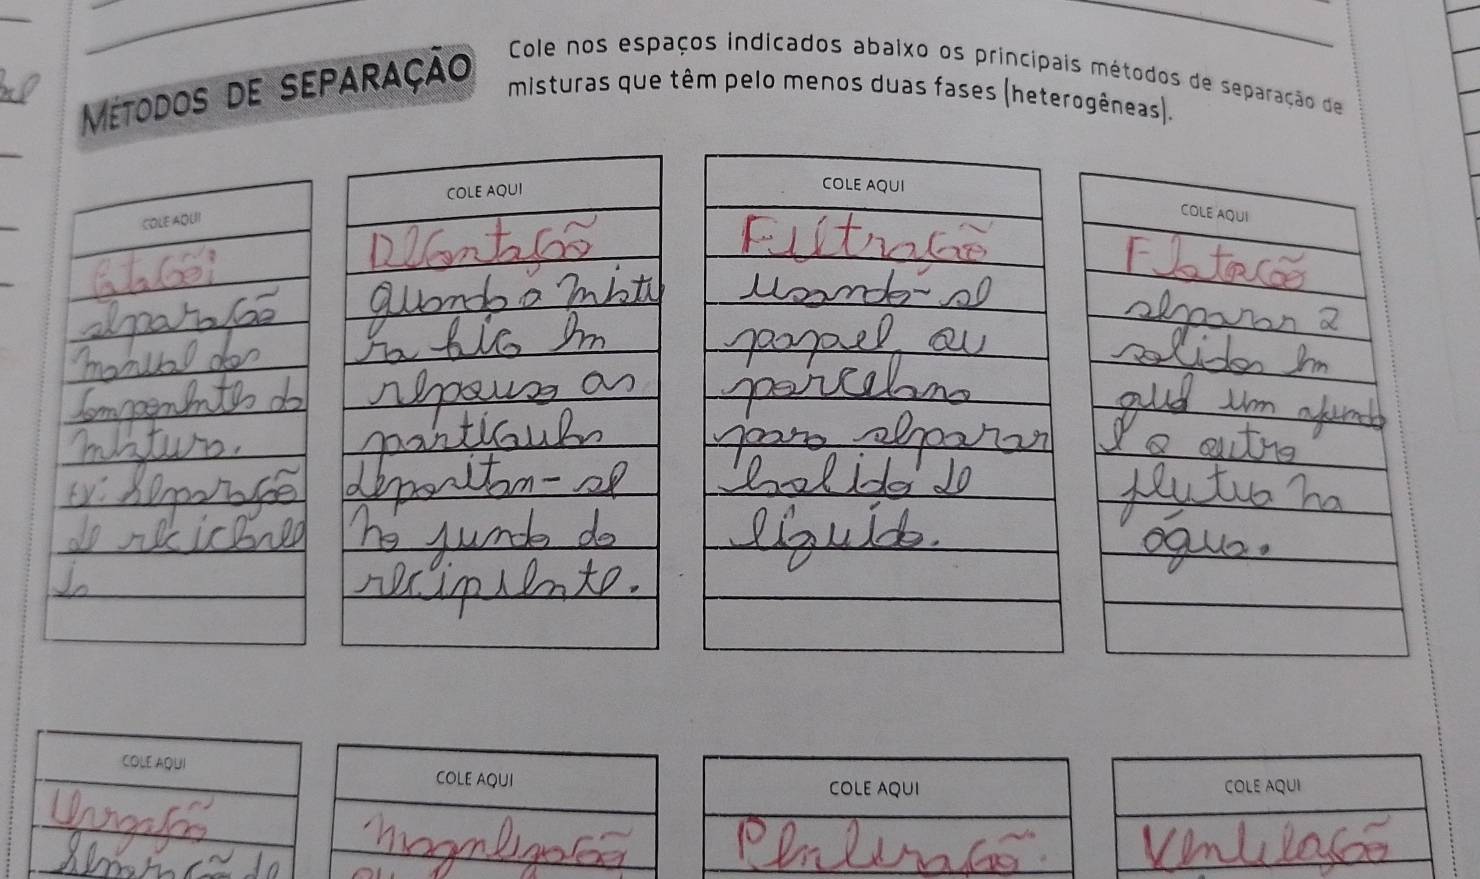 MÉTODOS DE SEPARAÇÃO
Cole nos espaços indicados abaixo os principais métodos de separação de
misturas que têm pelo menos duas fases (heterogêneas).
COLE AQUI
Catação:
separação
manual dos
componentes da
mistura.
ex: separação
de reciclave
is
COLE AQUI
Decantação
quando a mistu
ra fica em
repouso as
partículas
depositam-se
no fundo do
recipiente.
COLE AQUI
Filtração
usando-se
papel ou
porcelana
para separar
sólido de
líquido.
COLE AQUI
Flotação
separar 2
sólidos em
que um afunda
e o outro
flutua na
água.
COLE AQUI
Separação de
COLE AQUI
COLE AQUI
Peneiração
COLE AQUI
Ventilação